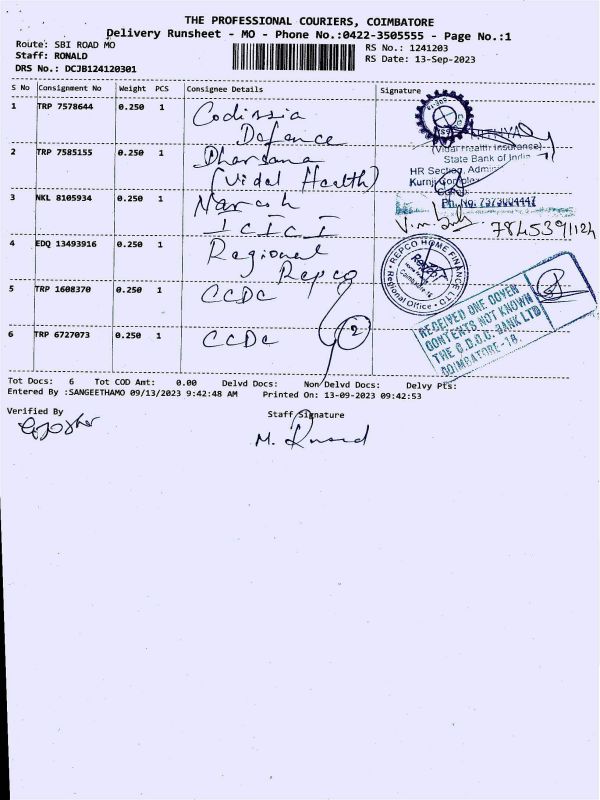 THE PROFESSIONAL COURIERS, COIMBATORE
Delivery Runsheet - MO - Phone No.:0422-3505555 - Page No.:1
Route: SBI ROAD MO
RS No.: 1241203
Staff: RONALD
RS Date: 13-Sep-2023
DRS No.: DCJB124120301
S No Consignment No Weight PCS Consignee Details Signature
1 TRP 7578644 0.250 1 Codissia
Defence
2 TRP 7585155 0.250 1 Dhardama
(Vidal Health)
(Vidal Health Insurance)
State Bank of India
HR Section, Admin
Kurnji Complex
Ph.No. 7373004447
3 NKL 8105934 0.250 1 Naresh
ICICI
4 EDQ 13493916 0.250 1 Regional
Repco
REPCO HOME FINANCE LTD
Regional Office
Coimbatore-18
5 TRP 1608370 0.250 1 CCDC
6 TRP 6727073 0.250 1 CCDC
2
RECEIVED ONE COVER
CONTENTS NOT KNOWN
THE C.D.C.C. BANK LTD
COIMBATORE-18.
Tot Docs: 6 Tot COD Amt: 0.00 Delvd Docs: Non Delvd Docs: Delvy Pts:
Entered By :SANGEETHAMO 09/13/2023 9:42:48 AM Printed On: 13-09-2023 09:42:53
Verified By
Staff Signature